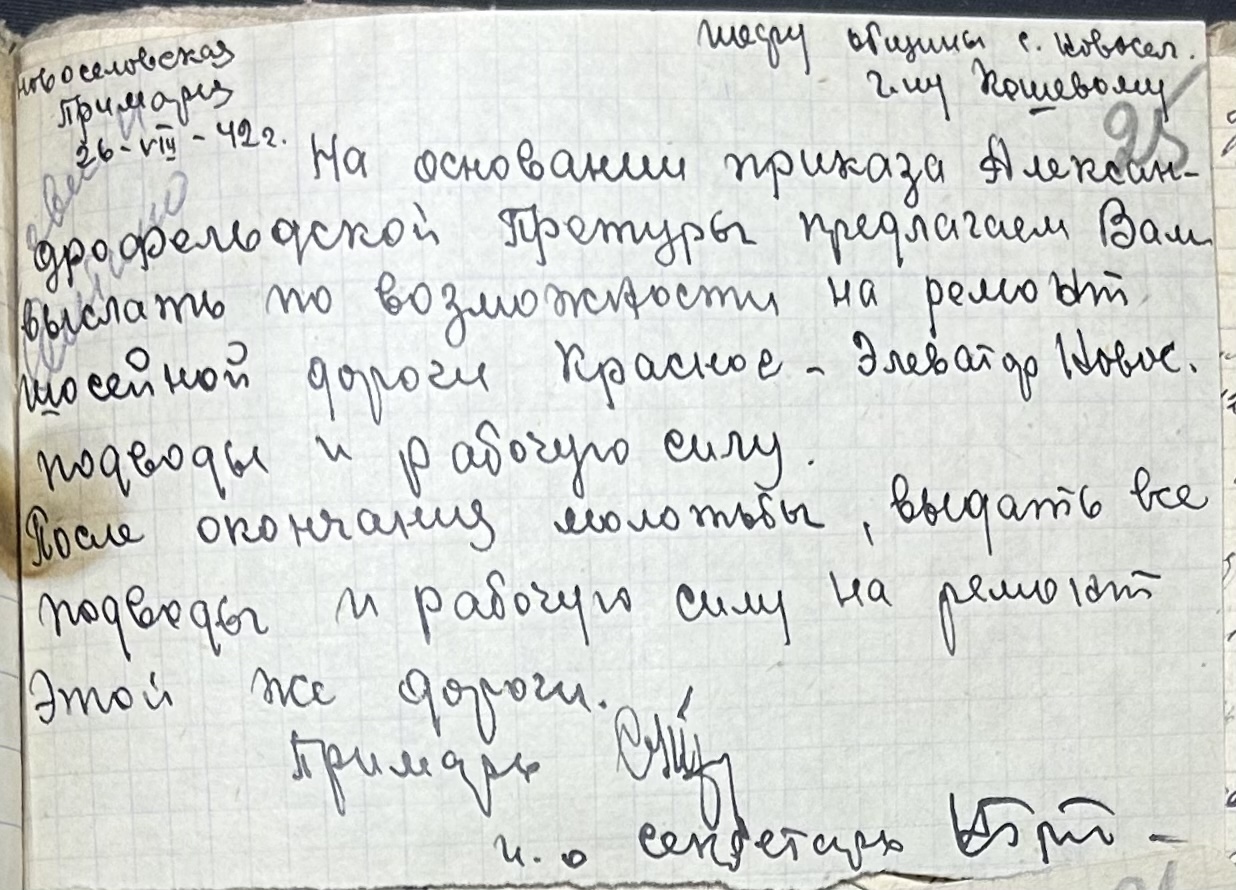 Новоселовская
Примария
26-VIII-42 г.
Шефу общины с. Новосел.
г-ну Кошевому
25
На основании приказа Алексан-
дрофельдской Претуры предлагаем Вам
выслать по возможности на ремонт
шосейной дороги Красное - Элеватор Новос.
подводы и рабочую силу.
После окончания молотьбы, выдать все
подводы и рабочую силу на ремонт
этой же дороги.
Примарь
и. о секретарь